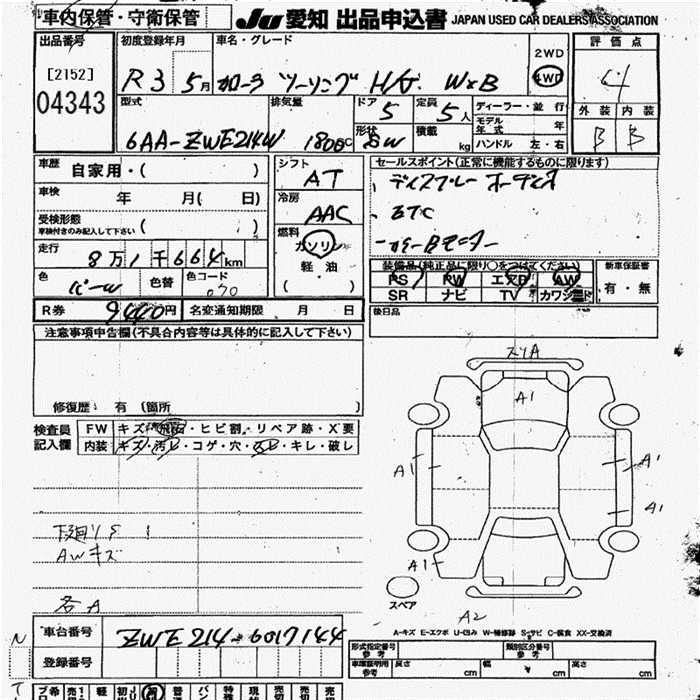 車内保管・守衛保管
JU 愛知 出品申込書 JAPAN USED CAR DEALERS ASSOCIATION
出品番号
[2152]
04343
初度登録年月
R3 5月
車名・グレード
カローラ ツーリング H/G W×B
2WD
4WD
評価点
4
外装 内装
B B
型式
6AA-ZWE214W
排気量
1800CC
ドア
5
形状
SW
定員
5人
積載
kg
ディーラー・並行
モデル年式 年
ハンドル 左・右
車歴 自家用・( )
車検 年 月( 日)
受検形態
車検付きのみ記入して下さい ( )
走行 8万1千664km
色 パールW 色替 色コード 070
R券 9440円 名変通知期限 月 日
シフト
AT
冷房
AAC
燃料
ガソリン
軽・油
( ・ )
セールスポイント(正常に機能するものに限ります)
ディスプレーオーディオ
ETC
カラーBモニター
装備品(純正品に限り○をつけてください)
PS PW エアB AW
SR ナビ TV カワシート
新車保証書
有・無
後日品
注意事項申告欄(不具合内容等は具体的に記入して下さい)
修復歴: 有 (箇所 )
検査員記入欄
FW キズ・飛石・ヒビ割・リペア跡・X要
内装 キズ・汚レ・コゲ・穴・スレ・キレ・破レ
下廻りS
AWキズ
各A
スリA
A1
A1
A1
A1
A1
スペア
A2
A-キズ E-エクボ U-凹み W-補修跡 S-サビ C-腐食 XX-交換済
車台番号 ZWE214-6017144
登録番号
形式指定番号 参考
類別区分番号 参考
車庫証明用 参考 長さ cm 幅 cm 高さ cm